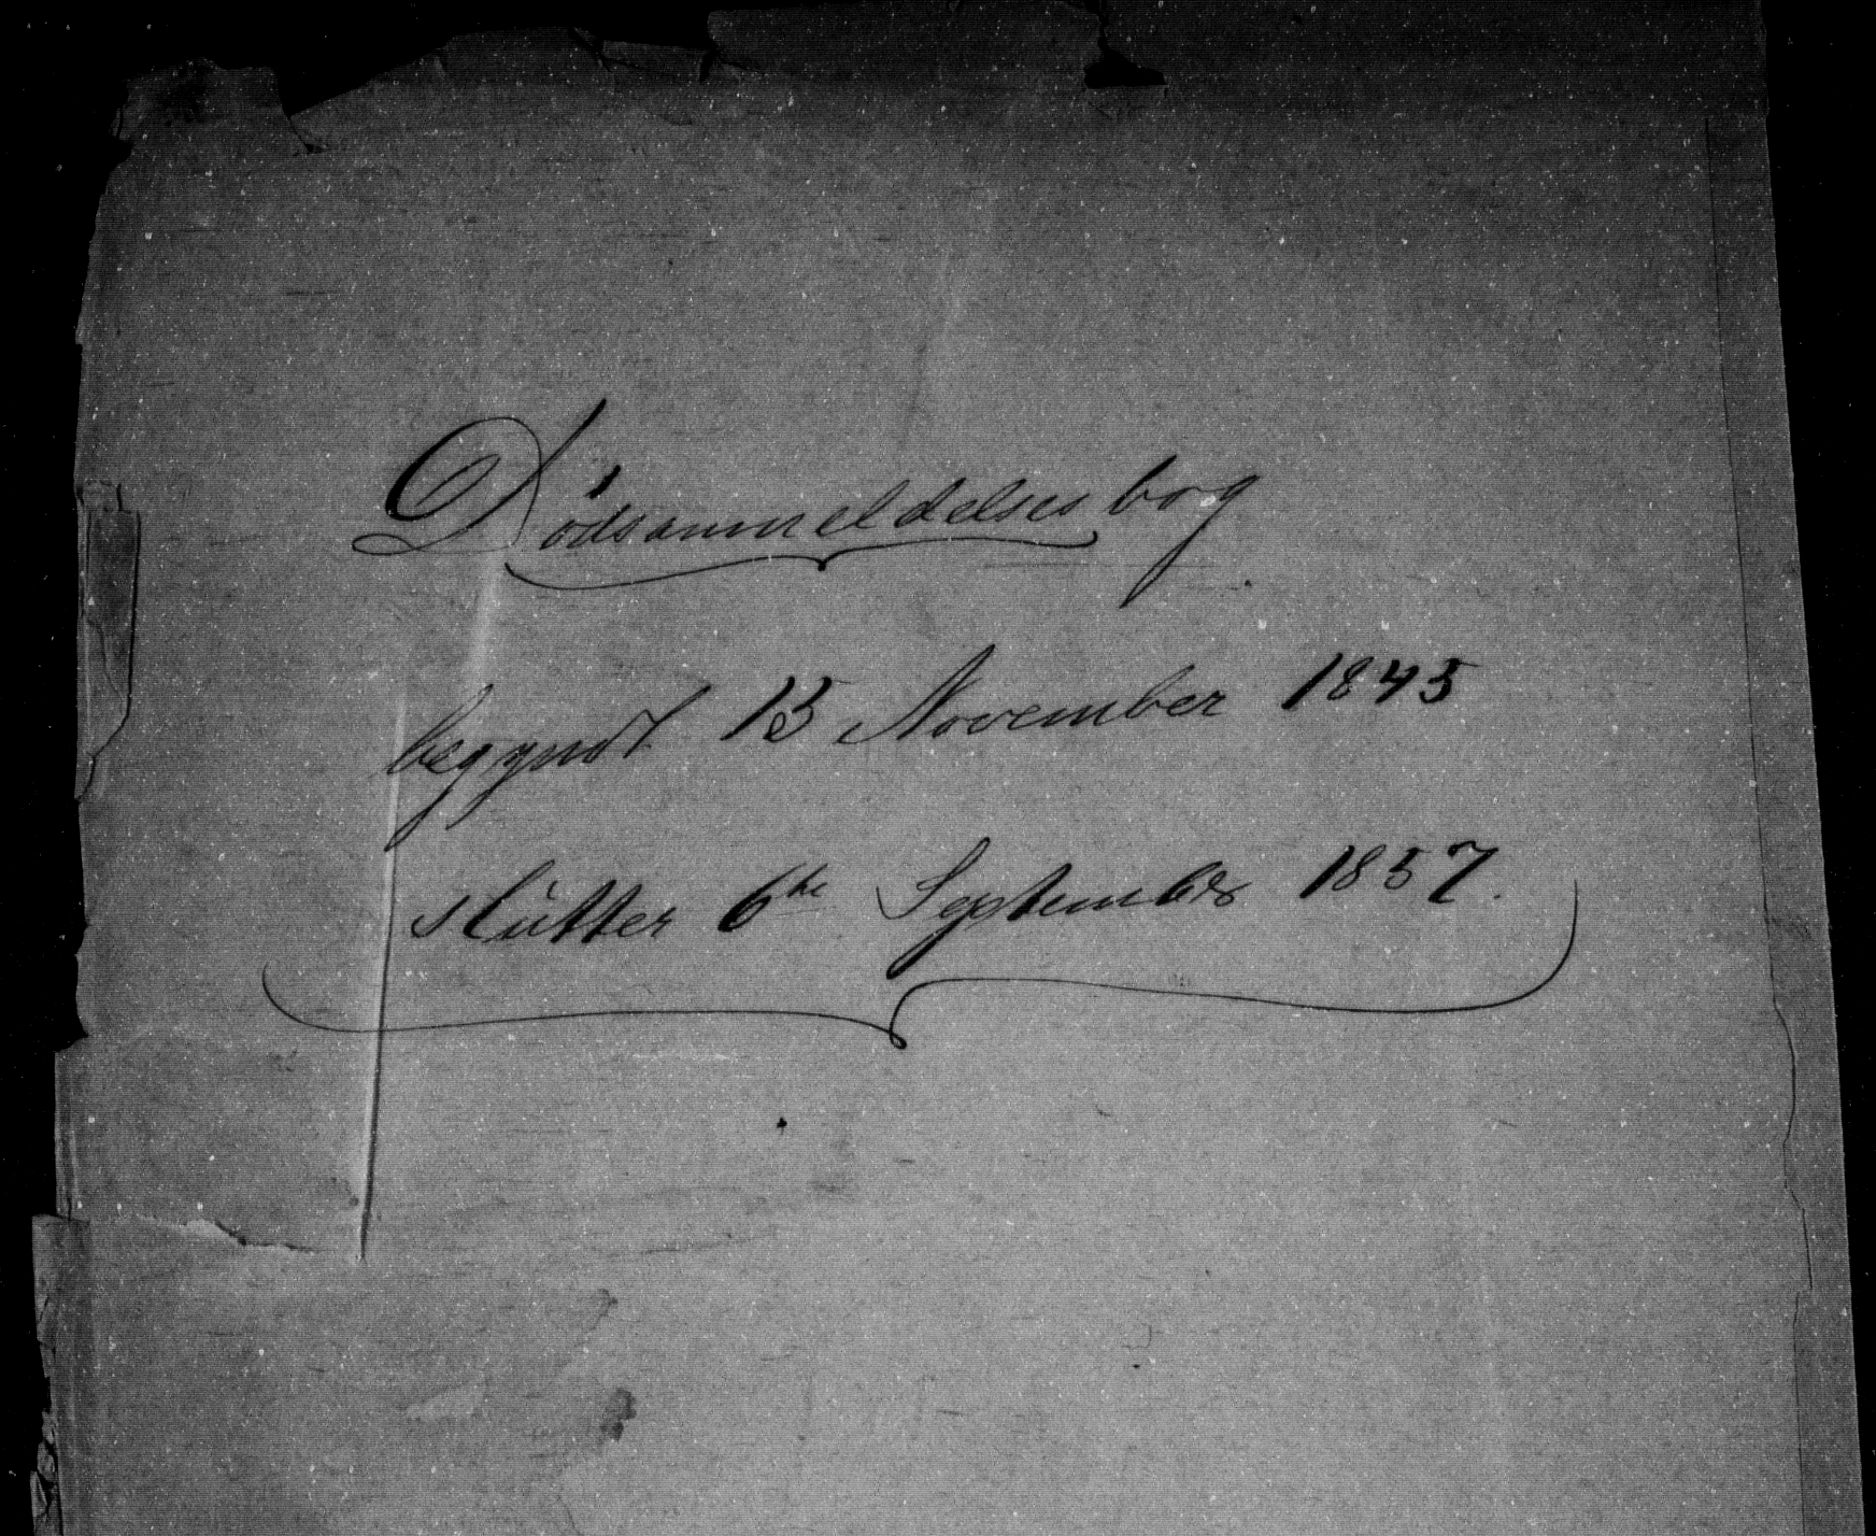 Dödsanmeldelsesbog
begyndt 13 November 1845
slutter 6te September 1857.